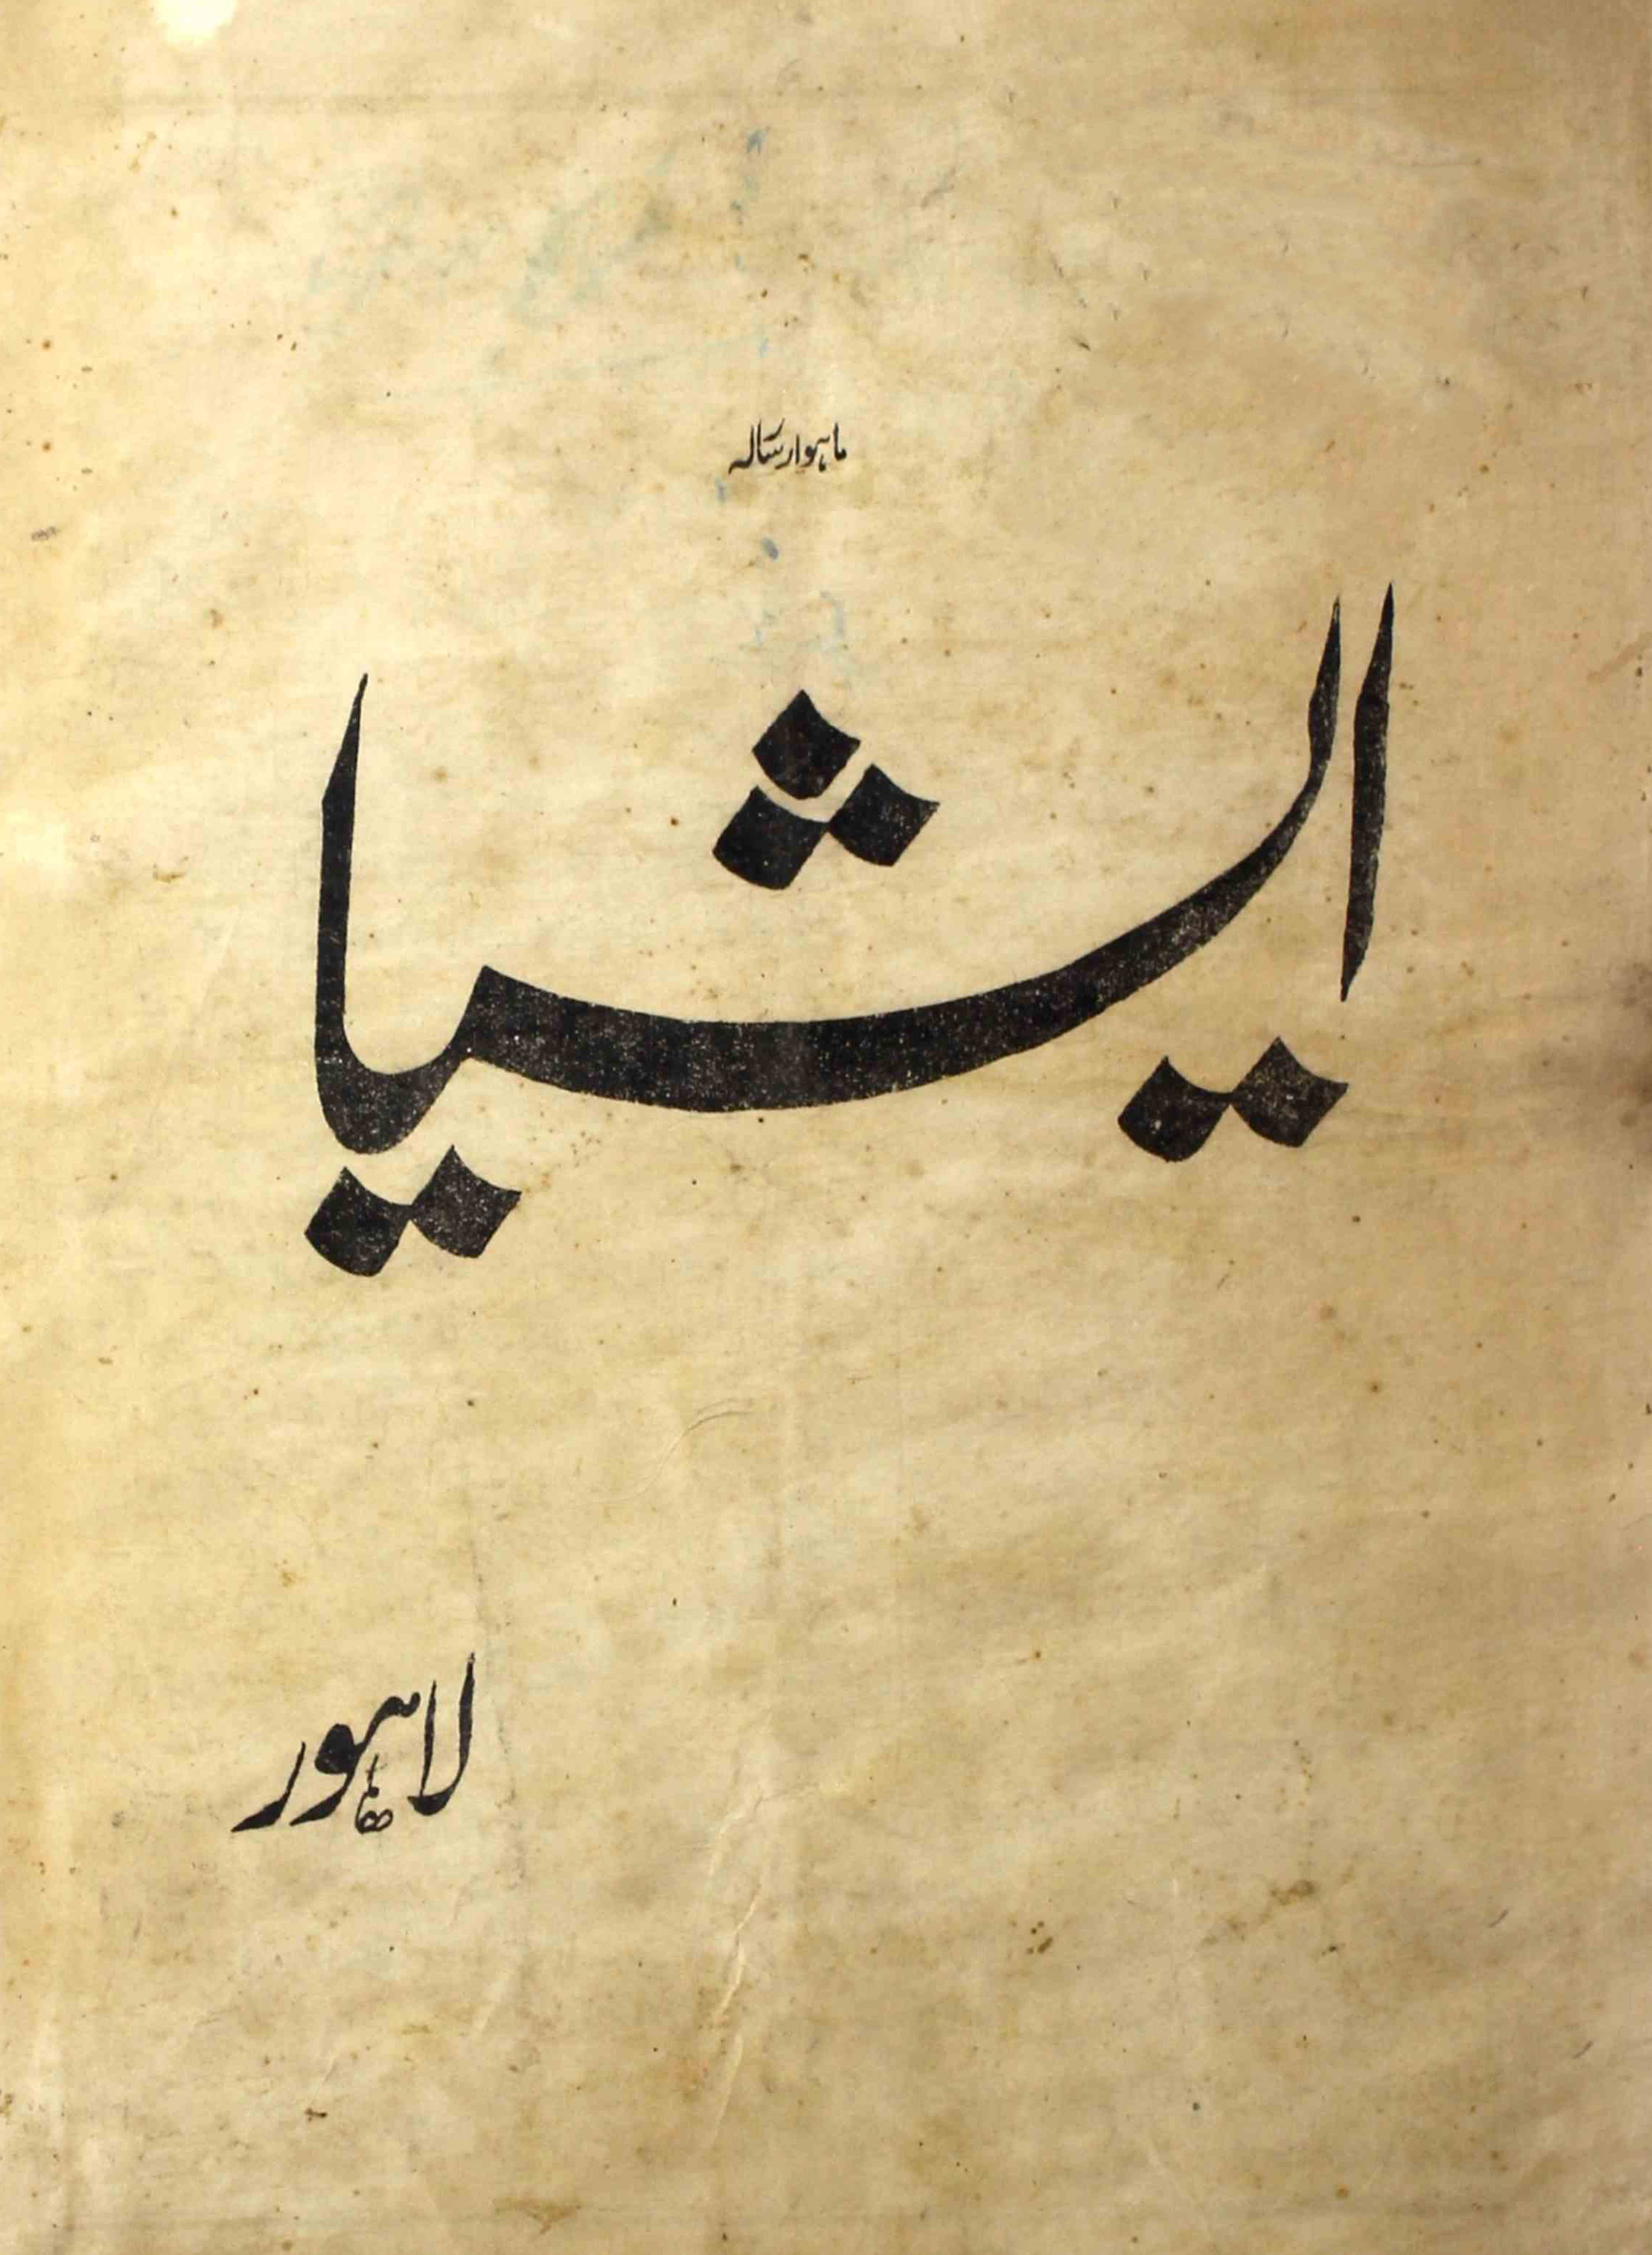 ماہوار رسالہ
ایشیا
لاہور